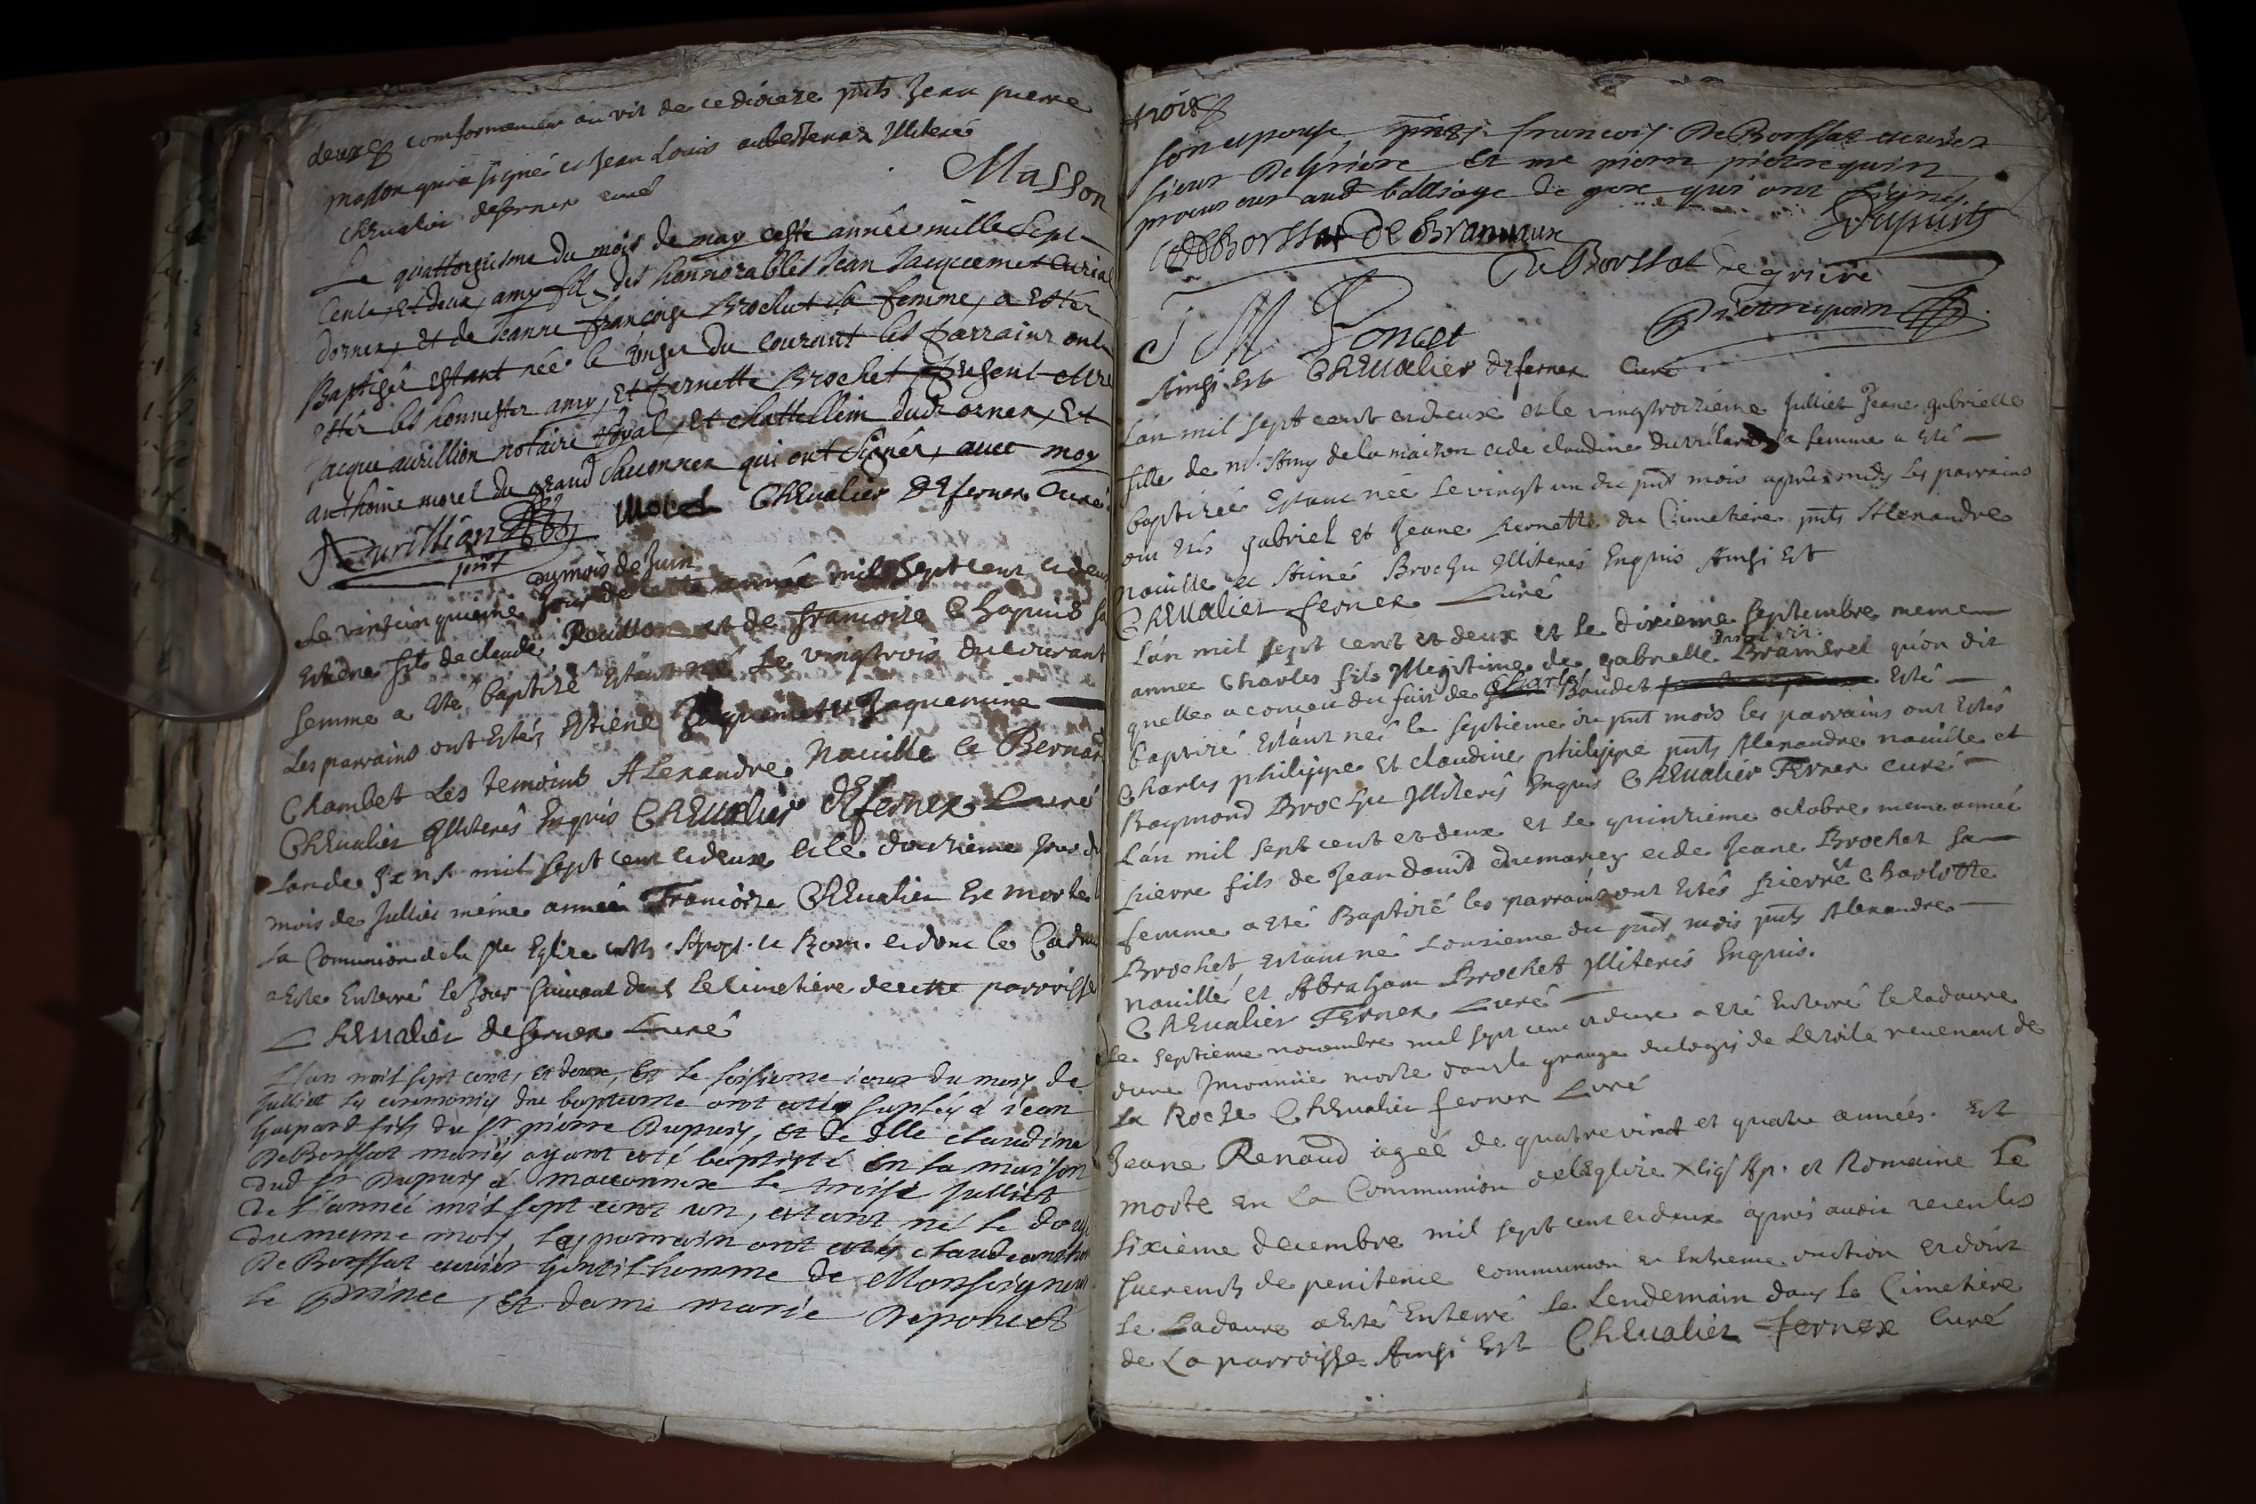 deuxe conformement au rit de ce dioceze pnts Jean pierre
masson qui a signé et Jean Louis illiteré
Chevalier defernex curé
Masson
Le quattorziesme du mois de may ceste année mille Sept
Cents, et deux, amy fils des honnorables Jean Jacquemet Curial
dornex, et de Jeanne françoise Brochut sa femme, a Esté
Baptisé estant née le onze du courant les parrains onts
estés les honnestes amy, Et pernette Brochet present Mre
Jacque aurillion notaire Royal, Et chattellein dud ornex, Et
anthoine morel du grand Sacconnex qui ont signés, avec moy
Aurillian
pnt
Morel Chevalier Defernex Curé
du mois de Juin
Le vintcinquieme Jour de cette année mil sept cent et deux
Estiene fils de claude Rouillon et de francoize Chapuis sa
femme a eté baptizé Estant né le vingtrois du courant
Les parrains ont Estés Estiene Jaquemette Jaquemine
Chambet Les temoins Alexandre Naville et Bernard
Chevalier illiterés Enquis Chevalier Defernex Curé
Lan mil sept cent et deux et le douzieme Jour du
mois de Jullier méme année Francoize Chevalier Ex morte
la Comunion de la ste Eglize cath. Apost. et Rom. et dont le Cadavre
a esté Enterré le Jour suivant dans le Cimetiere de cette parroisse
Chevalier defernex Curé
L'an mil sept cent, et deux, et le seisieme iour du moys de
Julliet les ceremonies du baptesme ont estés supléés à iean
gaspard fils du sr pierre Dupuis, et de dlle claudine
De Borssat mariés ayant esté baptisé en la maison
dud sr Dupuis à maconnex le treise Julliet
de l'année mil sept cent un, estant né le douse
du mesme moys les parrain ont estés claude anthoi
De Borssat escuier gentilhomme de Monseigneur
le prince, et dame marie Deponcet
troixe
son espouse, pnts francois De Borssat escuier
sieur De griere Et me pierre pierrequin
procureur aud balliage de gex qui ont signes
De Borssat de Bramaux
Dupuis
De Borssat de griere
J M Poncet
Pierrequin
Ainsi Est Chevalier defernex Curé
Lán mil sept cent et deux et le vingtroizieme Julliet Jeane gabrielle
fille de Amy de la maizon et de claudine duvilard sa femme a eté
baptizée Estant née le vingt un du pnt mois apres midy les parrains
ont etés gabriel et Jeane pernette du Cimetiere pnts Alexandre
naville et Aimé Brochu illiterés Enquis Ainsi Est
Chevalier fernex Curé
Lán mil sept cent et deux et le dixieme septembre meme
annee Charles fils illegitime de gabrielle Bramerel qu'on dit
quelle a conceu du fait de Charles Baudet Esté
baptizé Estant né le septieme du pnt mois les parrains ont Estés
Charles philippe et claudine philippe pnts Alexandre naville et
Raymond Brochu illiterés Enquis Chevalier Fernex curé
Lán mil sept cent et deux et le quinzieme octobre meme année
Pierre fils de Jean david dumarey et de Jeane Brochet sa
femme a eté Baptizé les parrains ont Estés Pierre et Charlotte
Brochet, Estant né Lonzieme du pnt mois pnts Alexandre
naville et Abraham Brochet illiterés Enquis.
Chevalier Fernex Curé
Le septieme novembre mil sept cent et deux a eté Enterré le Cadavre
dune Inconnüe morte dans la grange du logis de Létoile revenant de
La Roche Chevalier fernex Curé
Jeane Renaud agée de quatre vint et quatre années. Est
morte en la Communion de lEglize Ap. et Romaine le
sixieme decembre mil sept cent et deux apres avoir receu les
sacrements de penitence communion et Extreme onction et dont
le Cadavre a esté Enterré le Lendemain dans le Cimetiere
de La parroisse Ainsi Est Chevalier fernex Curé